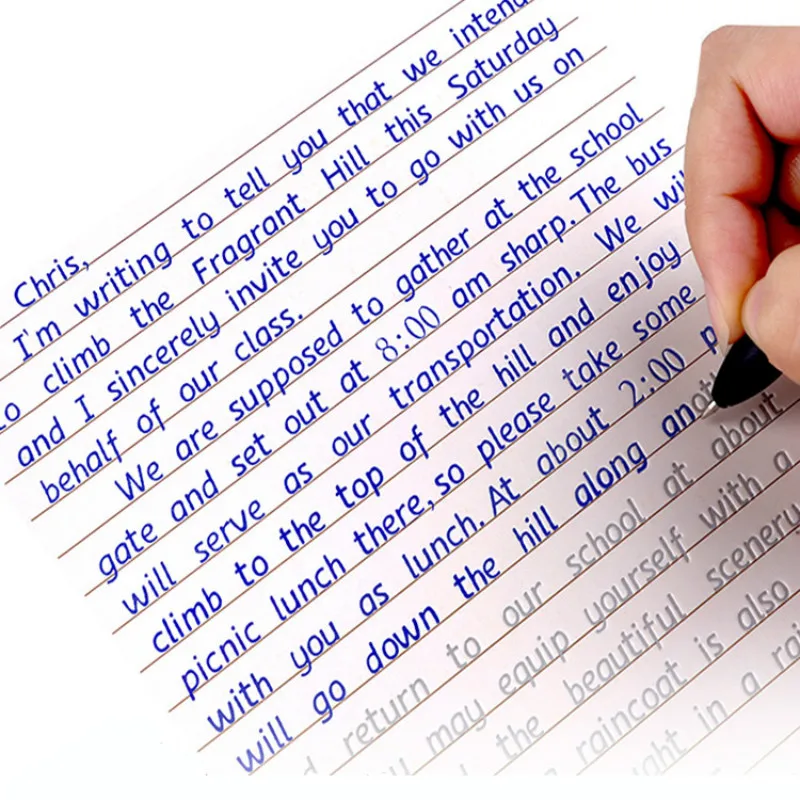 Chris,
I'm writing to tell you that we intend
to climb the Fragrant Hill this Saturday
and I sincerely invite you to go with us on
behalf of our class.
We are supposed to gather at the school
gate and set out at 8:00 am sharp. The bus
will serve as our transportation. We will
climb to the top of the hill and enjoy
picnic lunch there, so please take some
with you as lunch. At about 2:00 p
will go down the hill along another
return to our school at about
may equip yourself with a
the beautiful scenery
raincoat is also
in a